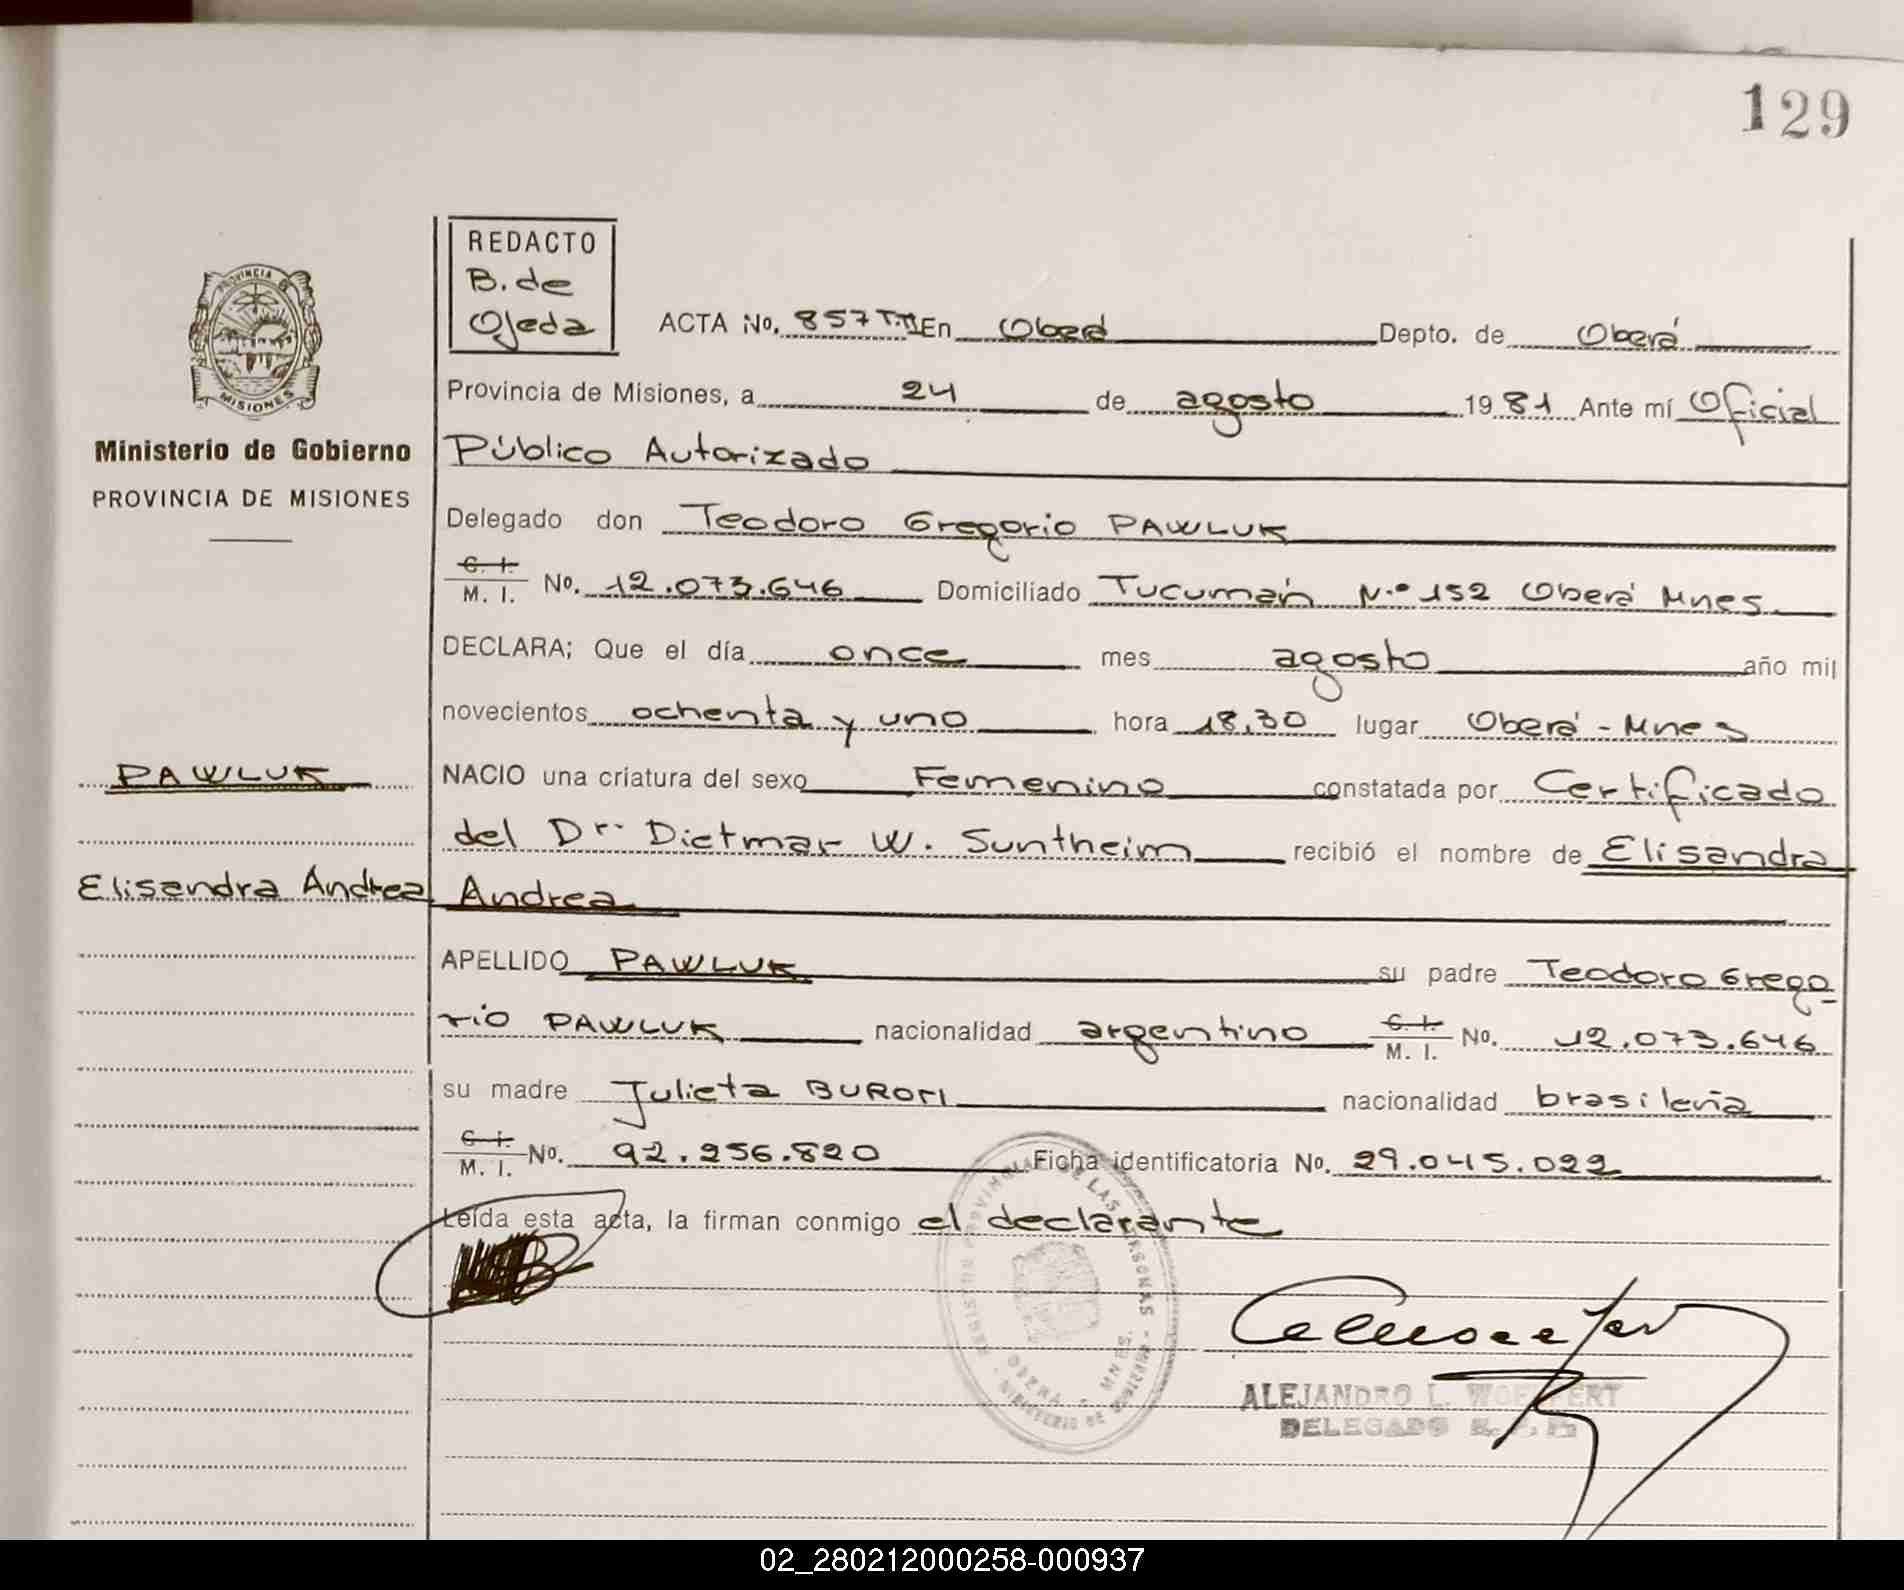 129
REDACTO
B. de
Ojeda
ACTA No. 857 T.II En Oberá Depto. de Oberá
Provincia de Misiones, a 24 de agosto 1981 Ante mí Oficial
Público Autorizado
PROVINCIA DE
MISIONES
Ministerio de Gobierno
PROVINCIA DE MISIONES
Delegado don Teodoro Gregorio PAWLUK
C. I.
M. I. No. 12.073.646 Domiciliado Tucumán N.º 152 Oberá Mnes.
DECLARA; Que el día once mes agosto año mil
novecientos ochenta y uno hora 18,30 lugar Oberá - Mnes
PAWLUK
NACIO una criatura del sexo Femenino constatada por Certificado
del Dr. Dietmar W. Suntheim recibió el nombre de Elisandra
Elisandra Andrea
Andrea
APELLIDO PAWLUK su padre Teodoro Grego
rio PAWLUK nacionalidad argentino C. I. M. I. No. 12.073.646
su madre Julieta nacionalidad brasileña
C. I.
M. I. No. 92.256.820 Ficha identificatoria No. 29.045.022
Leída esta acta, la firman conmigo el declarante
REGISTRO PROVINCIAL DE LAS PERSONAS
OBERÁ - MNES.
MINISTERIO DE GOBIERNO
ALEJANDRO L.
DELEGADO R. P. P.
02_280212000258-000937